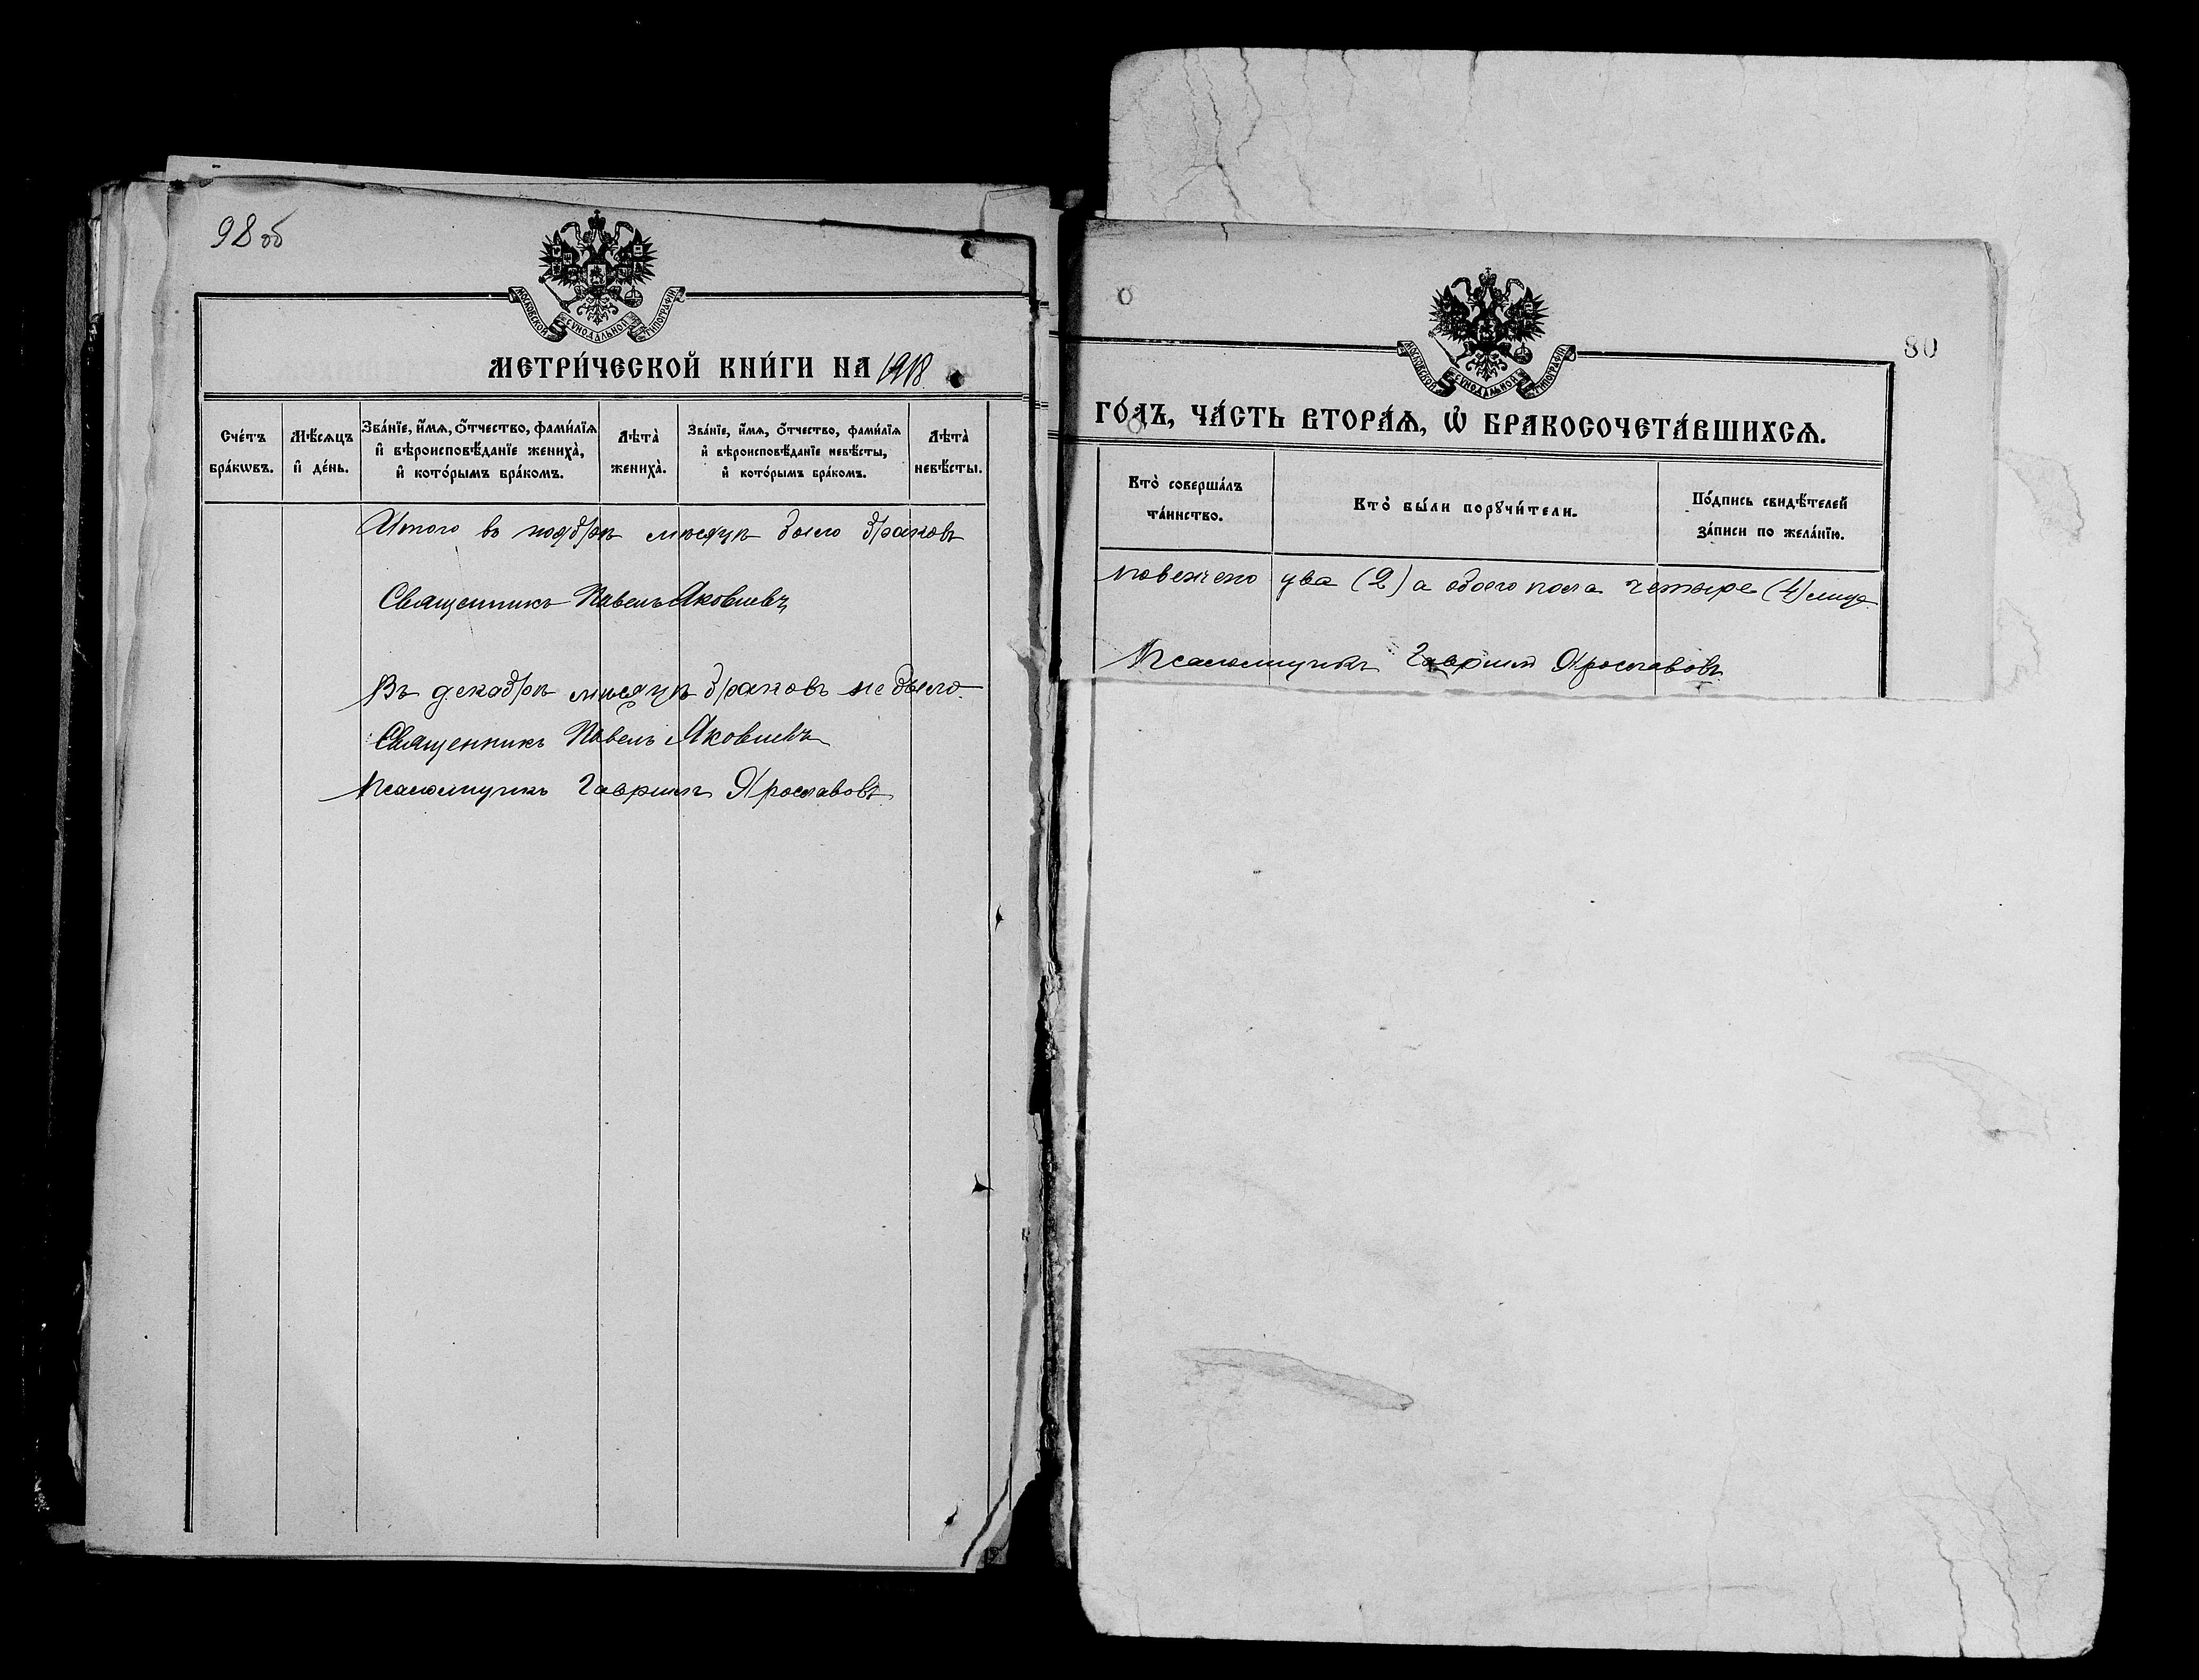 98 об
МОСКОВСКОЙ СѴНОДАЛЬНОЙ ТИПОГРАФІИ
МЕТРИ́ЧЕСКОЙ КНИ́ГИ НА 1918
Сче́тъ бра́кѡвъ.
Мѣ́сяцъ и҆ де́нь.
Зва́нїе, и҆́мѧ, ѻ҆́тчество, фами́лїѧ и҆ вѣроисповѣ́данїе жениха̀, и҆ кото́рымъ бра́комъ.
Лѣта̀ жениха̀.
Зва́нїе, и҆́мѧ, ѻ҆́тчество, фами́лїѧ и҆ вѣроисповѣ́данїе невѣ́сты, и҆ кото́рымъ бра́комъ.
Лѣта̀ невѣ́сты.
Итого въ ноябрѣ мѣсяцѣ было браковъ
Священникъ Павелъ Яковлевъ
Въ декабрѣ мѣсяцѣ браковъ не было.
Священникъ Павелъ Яковлевъ
Псаломщикъ Гавріилъ Ярославовъ
МОСКОВСКОЙ СѴНОДАЛЬНОЙ ТИПОГРАФІИ
80
ГО́ДЪ, ЧА́СТЬ ВТОРА́Ѧ, Ѡ҆ БРАКОСОЧЕТА́ВШИХСѦ.
Кто̀ соверша́лъ та́инство.
Кто̀ бы́ли порꙋчи́тели.
По́дпись свидѣ́телей за́писи по жела́нїю.
повенчено два (2) а обоего пола четыре (4) лица
Псаломщикъ Гавріилъ Ярославовъ